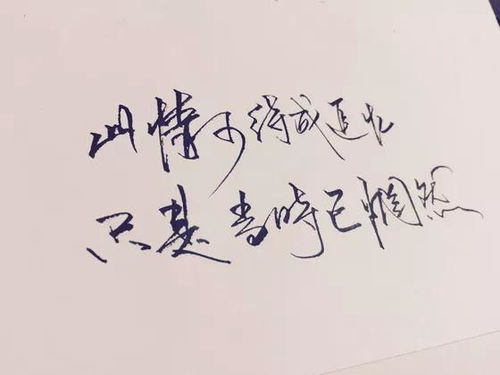 此情可待成追忆
只是當時已惘然